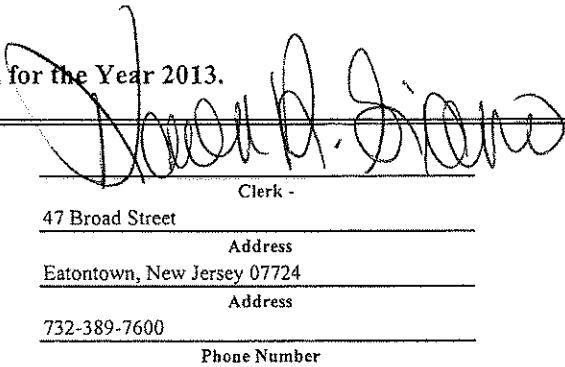 for the Year 2013.
Clerk -
47 Broad Street
Address
Eatontown, New Jersey 07724
Address
732-389-7600
Phone Number